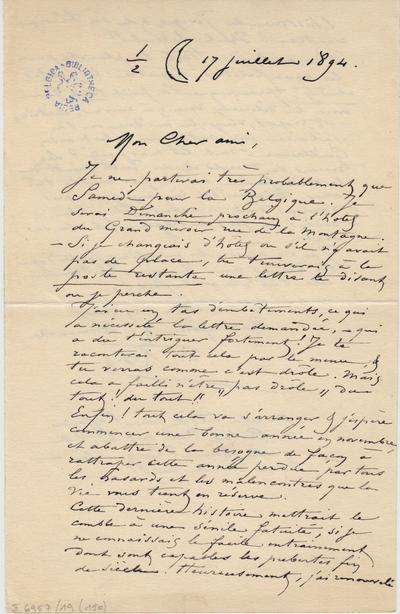 1/2 17 juillet 1894.
BIBLIOTHECA REGIA BELGICA
Mon Cher ami,
Je ne partirai très probablement que
Samedi pour la Belgique. Je
serai Dimanche prochain à l'hotel
du Grand miroir rue de la Montagne.
– Si je changeais d'hotel ou s'il n'y avait
pas de place, tu trouverais à la
poste restante une lettre te disant
où je perche.
J'ai eu un tas d'embêtements, ce qui
a nécessité la lettre demandée, – qui
a dû t'intriguer fortement! Je te
raconterai tout cela par le menu, &
tu verras comme c'est drôle. Mais
cela a failli n'être „pas drôle„ du
tout! du tout!!
Enfin! tout cela va s'arranger & j'espère
commencer une bonne année en novembre
et abattre de la besogne de façon à
rattraper cette année perdue par tous
les hasards et les malencontres que la
vie vous tient en réserve.
Cette dernière histoire mettrait le
comble à une sénile fatuité, si je
ne connaissais le facile entrainement
dont sont capables les pubertés fin
de siècle. Heureusement, j'ai renouvelé
II 6957/19 (150)